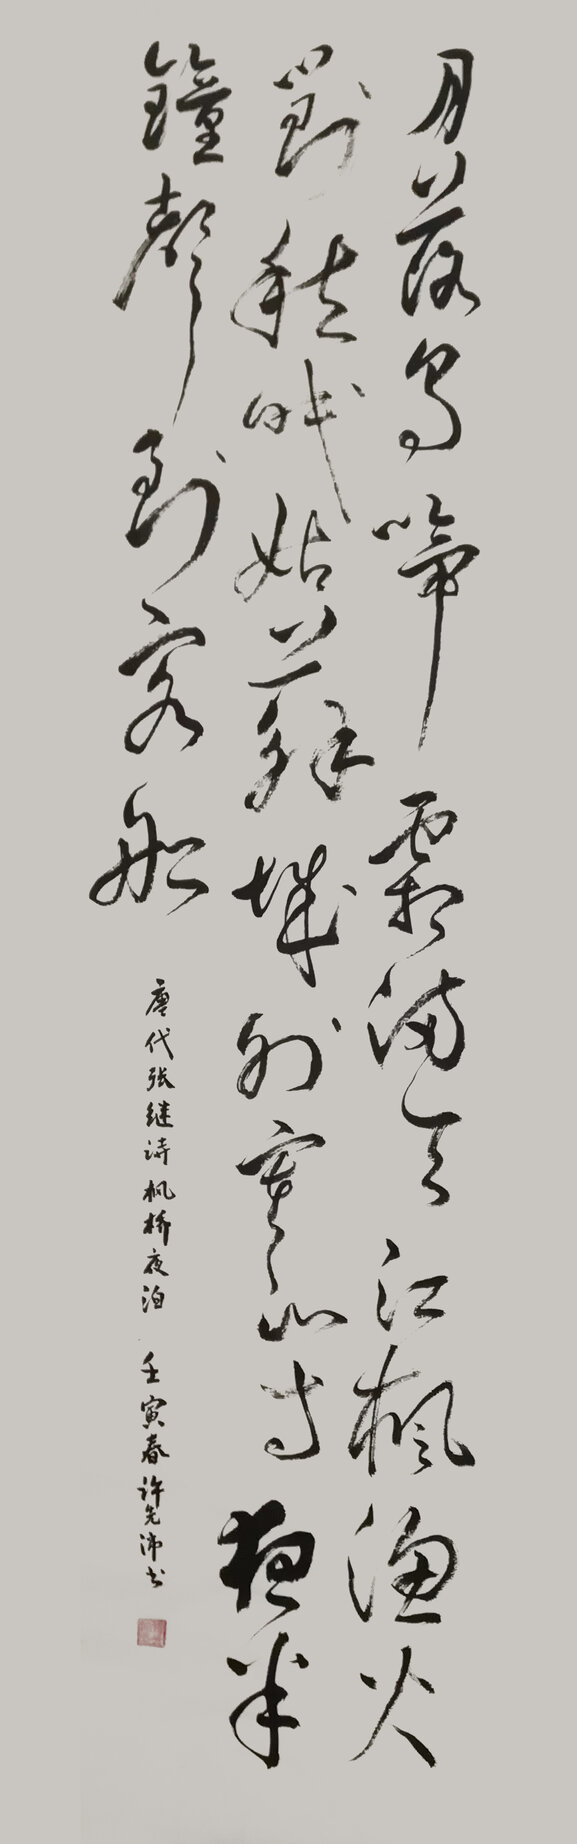 月落烏啼霜滿天江楓漁火
對愁眠姑蘇城外寒山寺夜半
鐘聲到客船
唐代张继诗枫桥夜泊 壬寅春许先沛书